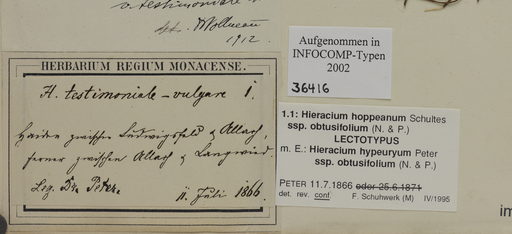 v. testimoniale
det. 
1912.
HERBARIUM REGIUM MONACENSE.
H. testimoniale – vulgare 1.
Haiden zwischen Ludwigsfeld & Allach,
ferner zwischen Allach & Langwied.
Leg. Dr. Peter. 11. Juli 1866.
Aufgenommen in
INFOCOMP-Typen
2002
36416
1.1: Hieracium hoppeanum Schultes
ssp. obtusifolium (N. & P.)
LECTOTYPUS
m. E.: Hieracium hypeuryum Peter
ssp. obtusifolium (N. & P.)
PETER 11.7.1866 oder 25.6.1871
det. rev. conf. F. Schuhwerk (M) IV/1995
im